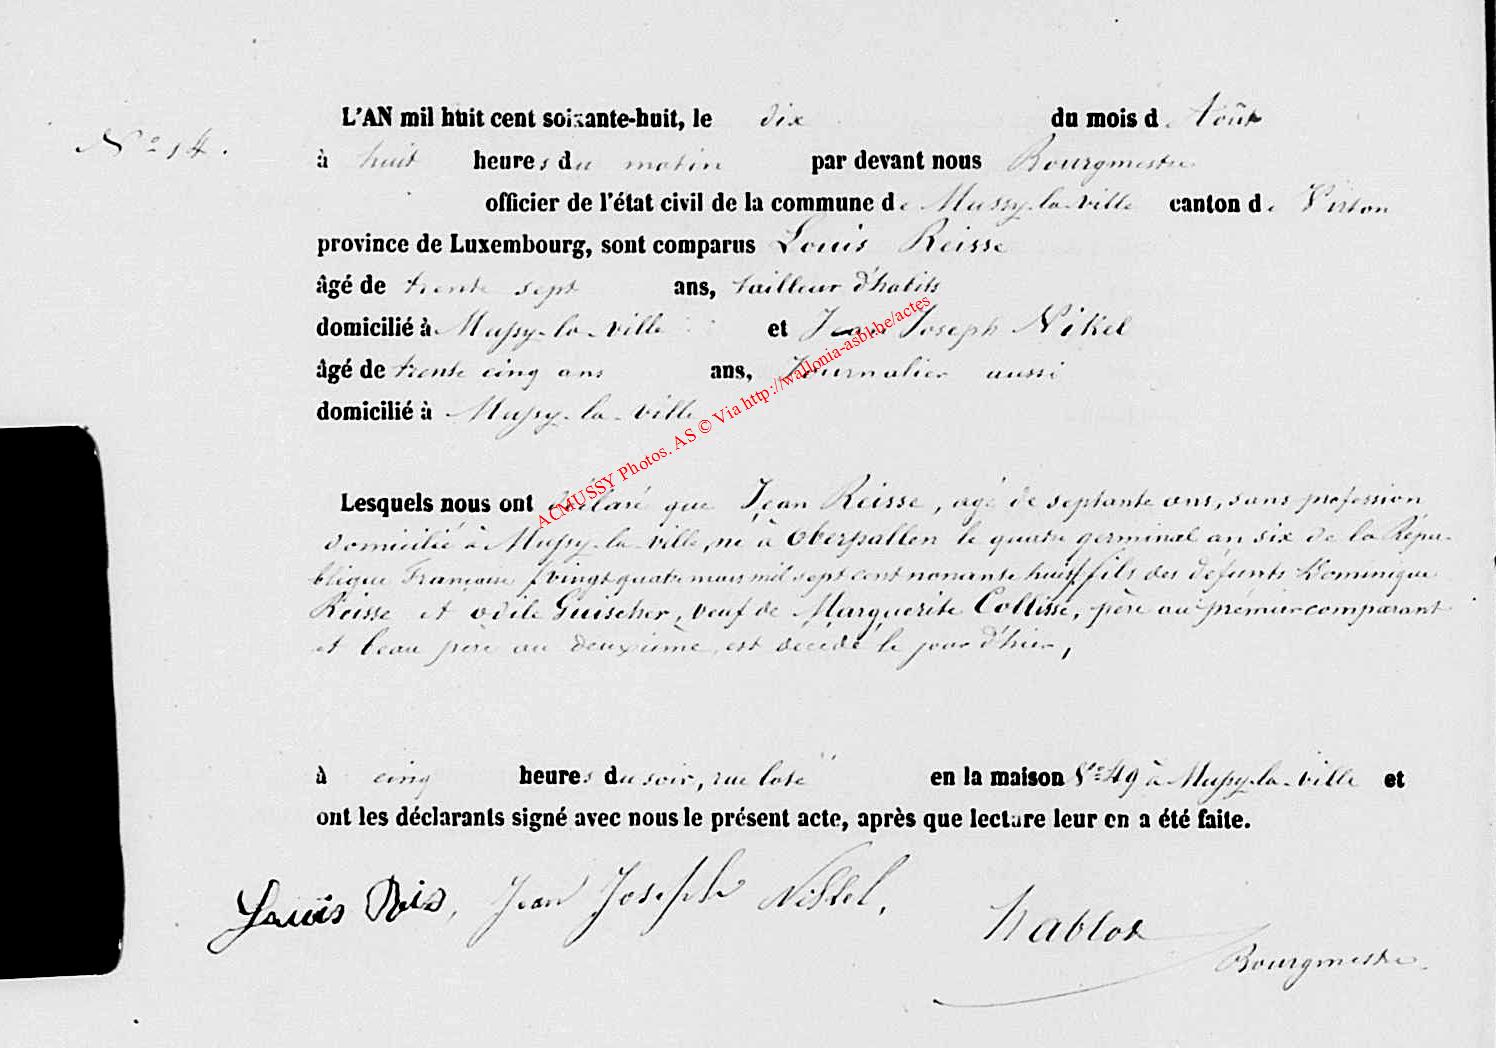 L'AN mil huit cent soixante-huit, le dix du mois d'Août
N° 14.
à huit heures du matin par devant nous Bourgmestre
officier de l'état civil de la commune de Mussy-la-ville canton de Virton
province de Luxembourg, sont comparus Louis Reisse
âgé de trente sept ans, tailleur d'habits
domicilié à Mussy-la-ville et Jean Joseph Nikel
âgé de trente cinq ans ans, Journalier aussi
domicilié à Mussy-la-ville
ACMUSSY Photos. AS © Via http://wallonia-asbl.be/actes
Lesquels nous ont déclaré que Jean Reisse, agé de septante ans, sans profession
domicilié à Mussy-la-ville, né à Oberpallen le quatre germinal an six de la Répu-
blique Française (vingt quatre mars mil sept cent nonante huit) fils des défunts Dominique
Reisse et Odile Guischer, veuf de Marguerite Collisse, père au premier comparant
et beau père au deuxième, est décédé le jour d'hier,
à cinq heures du soir, rue en la maison N° 49 à Mussy-la-ville et
ont les déclarants signé avec nous le présent acte, après que lecture leur en a été faite.
Louis Reis, Jean Joseph Nikel,
Nablot
Bourgmestre